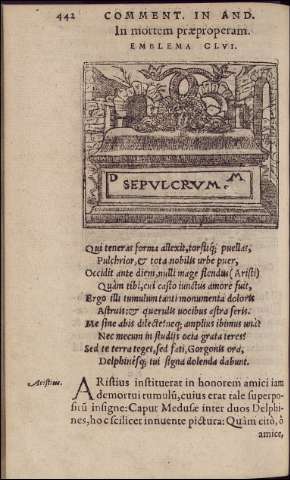 442 COMMENT. IN AND.
In mortem præproperam.
EMBLEMA CLVI.
D M
SEPVLCRVM.
Qui teneras forma allexit, torsitq́; puellas,
Pulchrior, & tota nobilis urbe puer,
Occidit ante diem, nulli mage flendus (Aristi)
Quàm tibi, cui casto iunctus amore fuit,
Ergo illi tumulum tanti monumenta doloris
Astruis: & querulis uocibus astra feris.
Me sine abis dilecte? neq; amplius ibimus unà?
Nec mecum in studiis ocia grata teres?
Sed te terra teget, sed fati, Gorgonis ora,
Delphinesq́; tui signa dolenda dabunt.
Aristius.
ARistius instituerat in honorem amici iam
demortui tumulũ, cuius erat tale superpo-
sitũ insigne: Caput Medusæ inter duos Delphi-
nes, hoc scilicet innuente pictura: Quàm citò, ô
amice,